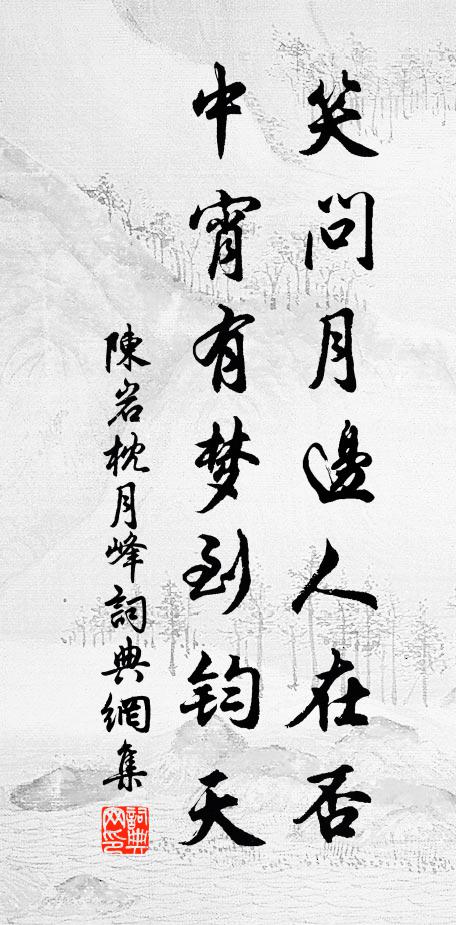 笑问月邊人在否
中宵有梦到钧天
陳岩枕月峰詞典網集
詞典網印